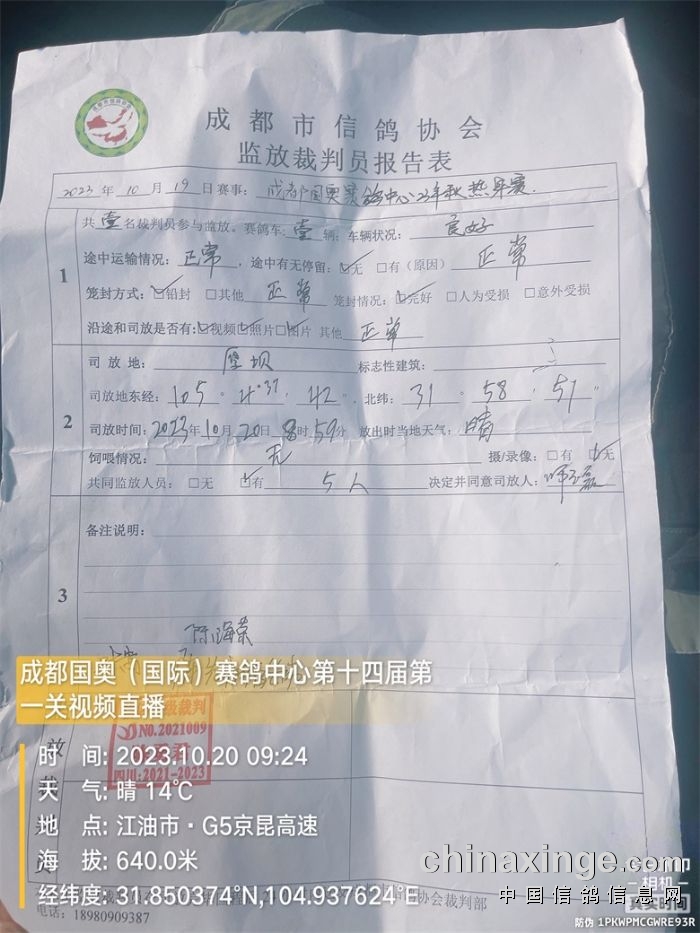 成都市信鸽协会
监放裁判员报告表
2023年10月19日赛事：成都国奥赛鸽中心23年秋热身赛
共壹名裁判员参与监放。赛鸽车：壹辆；车辆状况：良好
1
途中运输情况：正常，途中有无停留：☑无 □有（原因）正常
笼封方式：☑铅封 □其他 正常 笼封情况：☑完好 □人为受损 □意外受损
沿途和司放是否有：☑视频☑照片☑图片 其他 正常
司放地：坝 标志性建筑：
司放地东经：105° 42" 北纬：31°58'51"
2
司放时间：2023年10月20日8时59分 放出时当地天气：晴
饲喂情况：无 摄/录像：□有 ☑无
共同监放人员：□无 ☑有 5人 决定并同意司放人：
备注说明：
3
陈海荣
成都国奥（国际）赛鸽中心第十四届第
一关视频直播
级裁判
NO.2021009
四川:2021-2023
时 间: 2023.10.20 09:24
天 气: 晴 14℃
地 点: 江油市·G5京昆高速
海 拔: 640.0米
经纬度: 31.850374°N,104.937624°E
协会裁判部
电话：18980909387
chinaxinge.com
中国信鸽信息网
相机
真实时间
防伪 1PKWPMCGWRE93R